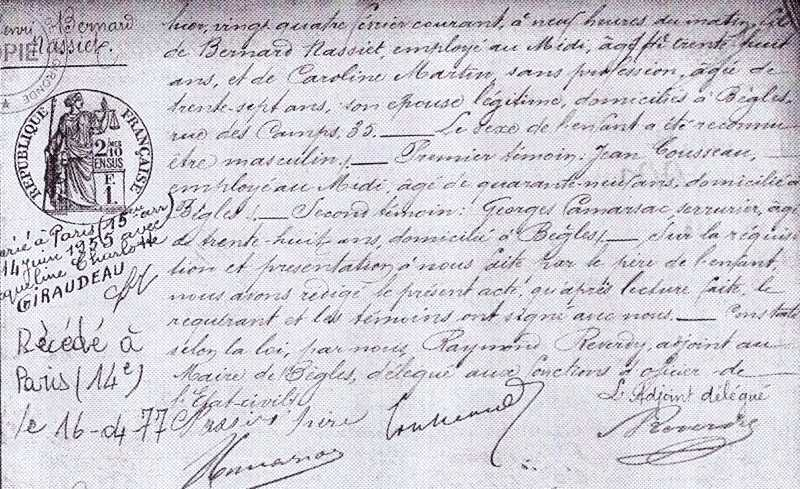 Henri Bernard
Nassiet.
COPIE
GIRONDE
RÉPUBLIQUE FRANÇAISE
2 10
EN SUS
F
1
Marié à Paris (15me arr)
14 juin 1955 avec
Jacqueline Charlotte
GIRAUDEAU
Décédé à
Paris (14e)
le 16-04 77
hier, vingt quatre février courant, à neuf heures du matin, fils
de Bernard Nassiet, employé au Midi, âgé de trente huit
ans, et de Caroline Martin, sans profession, âgée de
trente-sept ans, son épouse légitime, domiciliés à Bègles,
rue des Camps, 35. — Le sexe de l'enfant a été reconnu
être masculin. — Premier témoin: Jean Cousseau,
employé au Midi, âgé de quarante-neuf ans, domicilié à
Bègles. — Second témoin: Georges Camarsac, serrurier, âgé
de trente-huit ans, domicilié à Bègles. — Sur la réquisi-
tion et présentation à nous faite par le père de l'enfant,
nous avons rédigé le présent acte, qu'après lecture faite, le
requérant et les témoins ont signé avec nous. — Constaté
selon la loi, par nous, Raymond Reverdy, adjoint au
Maire de Bègles, délégué aux fonctions d'officier de
l'Etat-civil.
L'Adjoint délégué
Nassiet père
Reverdy